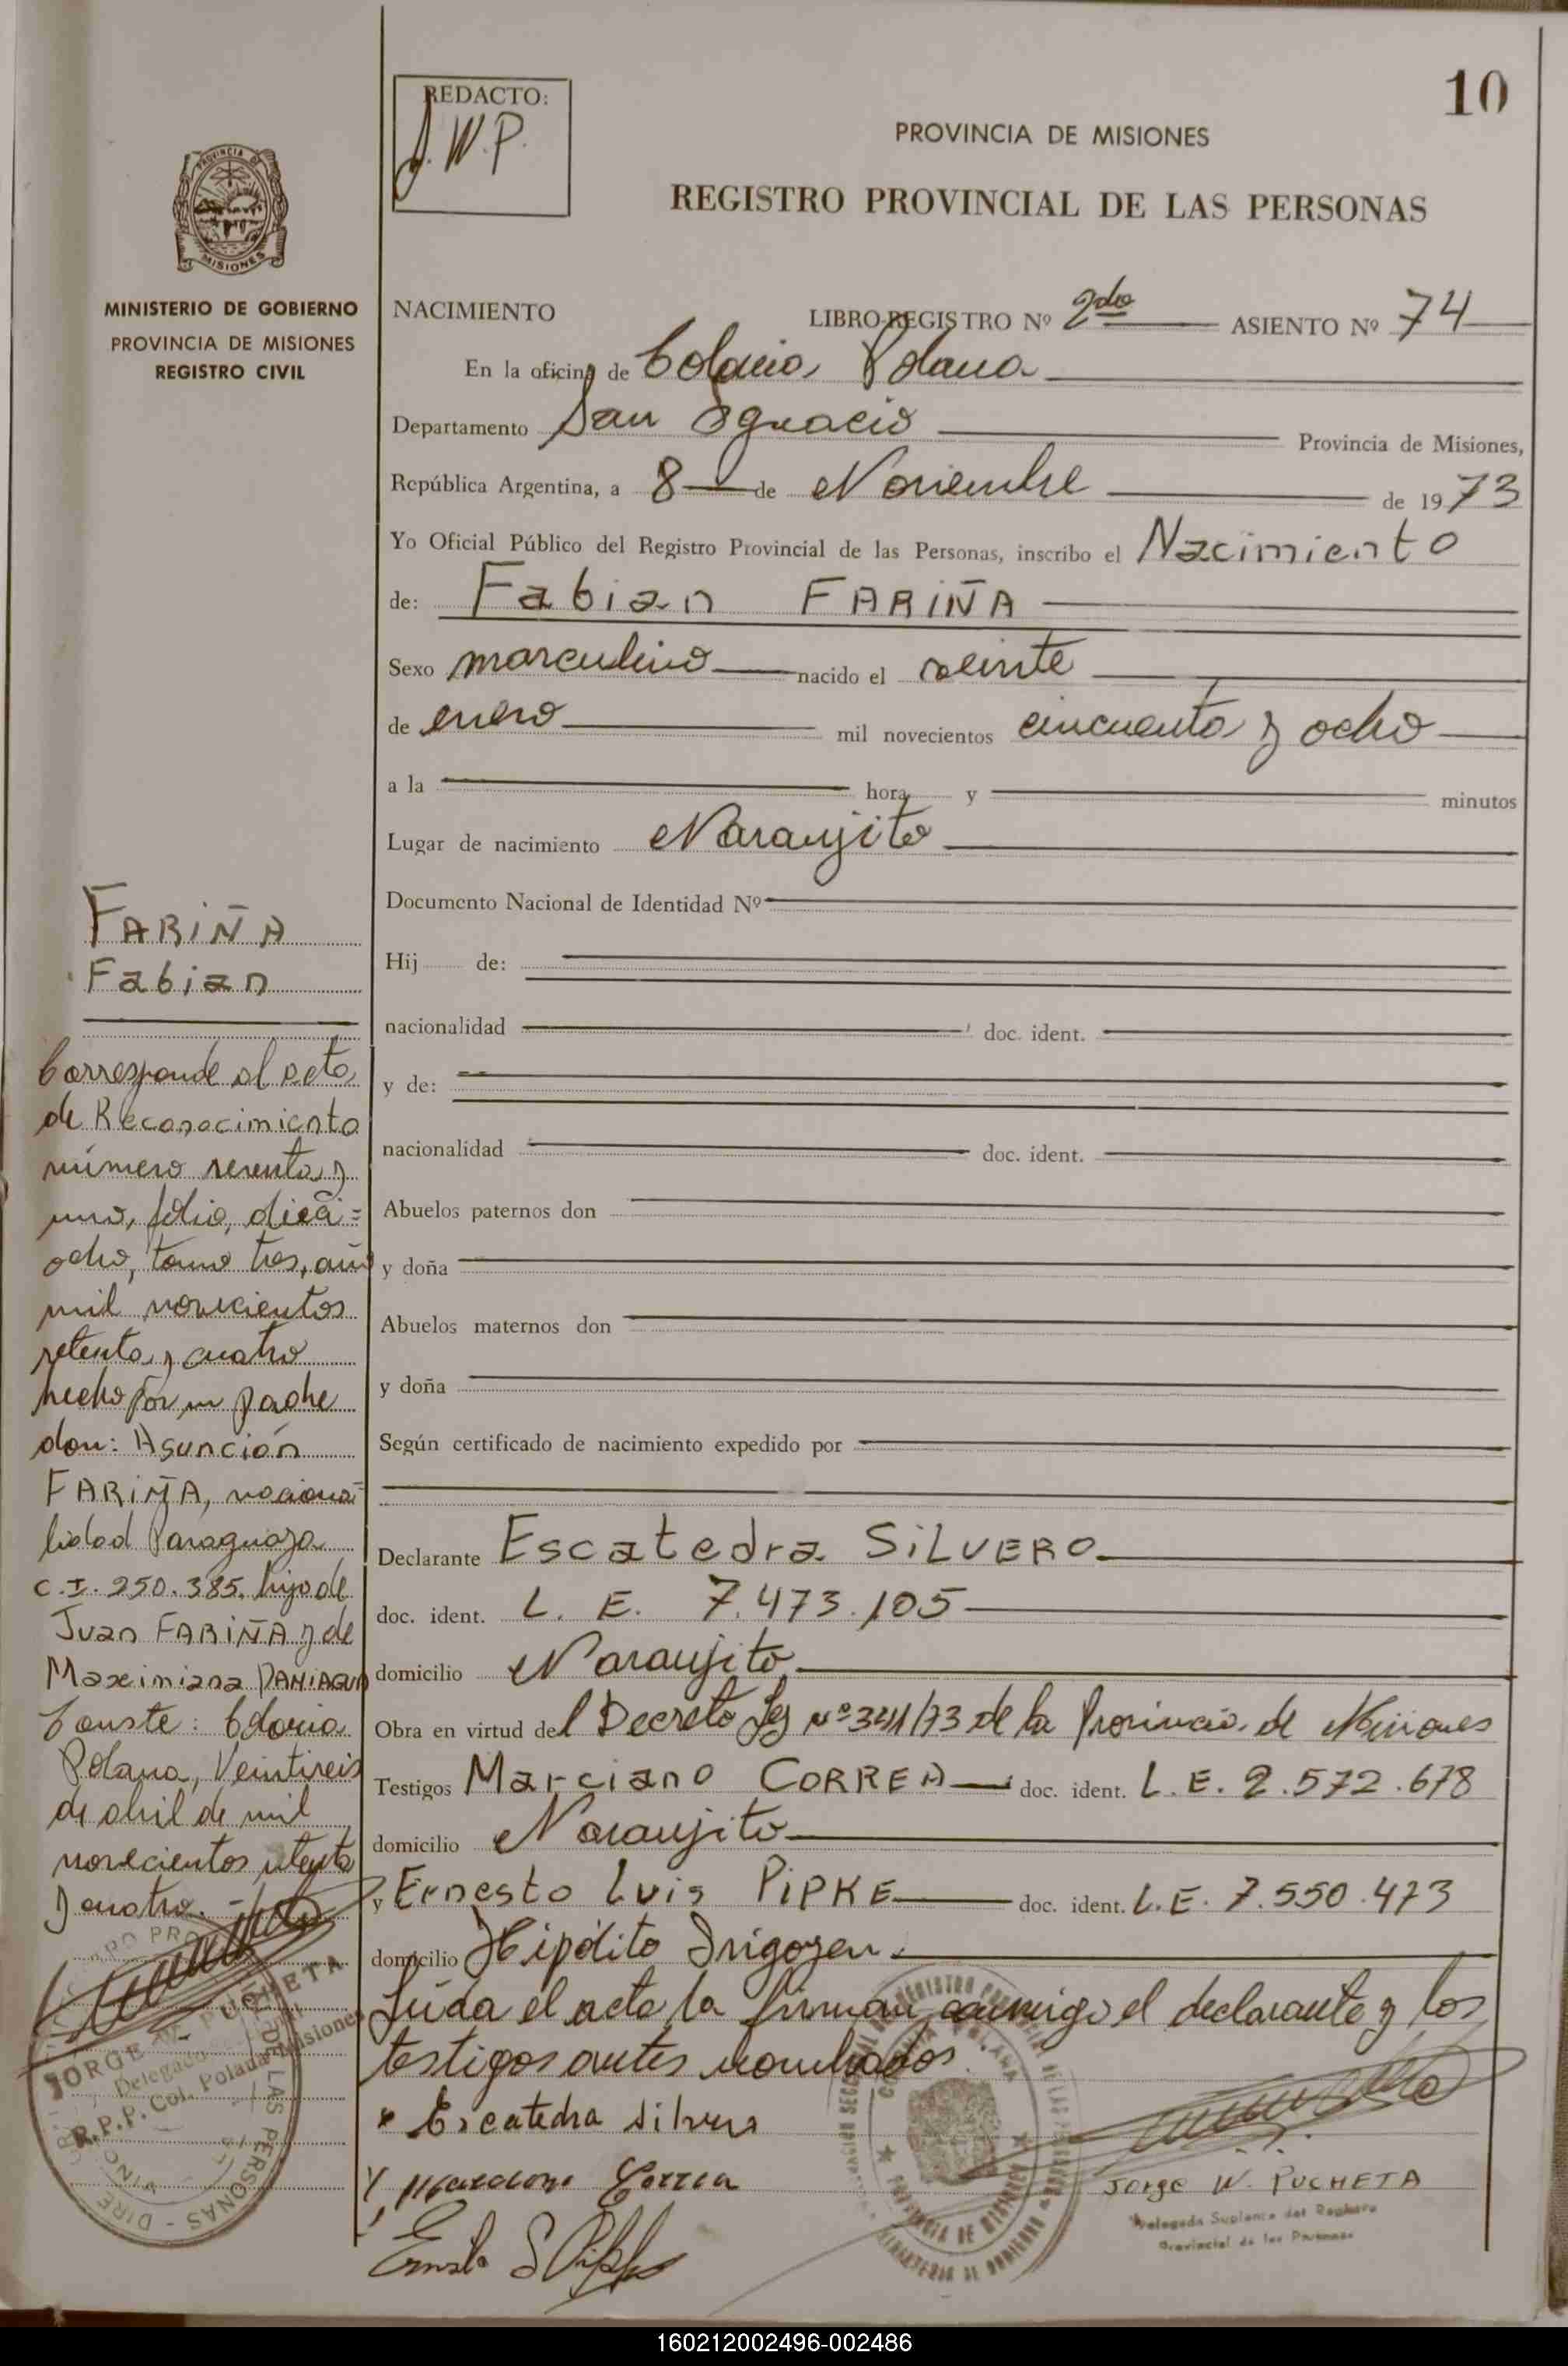 10
REDACTO:
J.W.P.
PROVINCIA DE MISIONES
REGISTRO PROVINCIAL DE LAS PERSONAS
PROVINCIA DE
MISIONES
MINISTERIO DE GOBIERNO
PROVINCIA DE MISIONES
REGISTRO CIVIL
NACIMIENTO LIBRO REGISTRO Nº 2do ASIENTO Nº 74
En la oficina de Colonia Polana
Departamento San Ignacio Provincia de Misiones,
República Argentina, a 8 de Noviembre de 1973
Yo Oficial Público del Registro Provincial de las Personas, inscribo el Nacimiento
de: Fabian FARIÑA
Sexo masculino nacido el veinte
de enero mil novecientos cincuenta y ocho
a la hora y minutos
Lugar de nacimiento Naranjito
Documento Nacional de Identidad Nº
Hij de:
nacionalidad doc. ident.
y de:
nacionalidad doc. ident.
Abuelos paternos don
y doña
Abuelos maternos don
y doña
Según certificado de nacimiento expedido por
Declarante Escatedra SILVERO
doc. ident. L. E. 7.473.105
domicilio Naranjito
Obra en virtud del Decreto Ley nº 3241/73 de la Provincia de Misiones
Testigos Marciano CORREA doc. ident. L.E. 2.572.678
domicilio Naranjito
y Ernesto Luis PIPKE doc. ident. L.E. 7.550.473
domicilio Hipólito Irigoyen
Leída el acta la firman conmigo el declarante y los
testigos antes nombrados.
Escatedra Silvero
Marciano Correa
Jorge W. PUCHETA
Delegado Suplente del Registro
Provincial de las Personas
FARIÑA
Fabian
Corresponde al acta
de Reconocimiento
número sesenta y
uno, folio, dieci=
ocho, tomo tres, año
mil novecientos
setenta y cuatro
hecho por su padre
don: Asunción
FARIÑA, naciona=
lidad Paraguaya
C.I. 250.385, hijo de
Juan FARIÑA y de
Maximiana PANIAGUA
Conste: Colonia
Polana, Veintiseis
de abril de mil
novecientos setenta
y cuatro.
JORGE W. PUCHETA
Delegado
R.P.P. Col. Polana Misiones
160212002496-002486